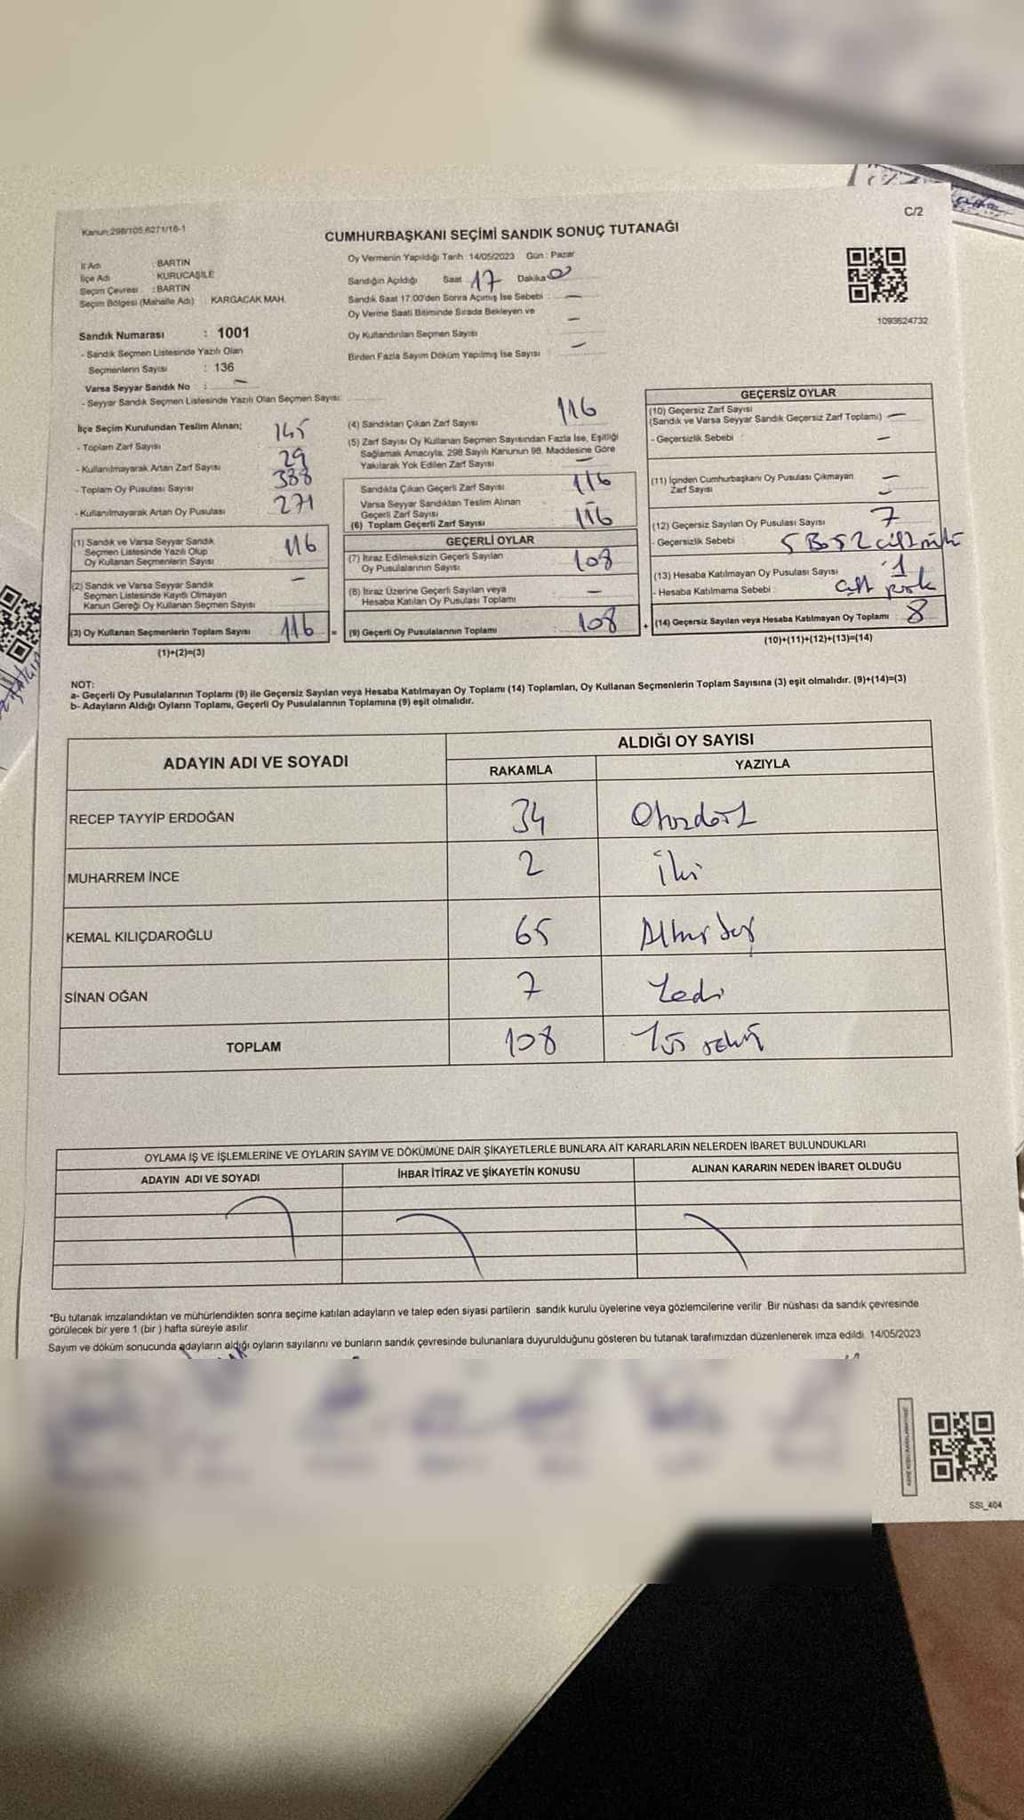 Kanun:298/105,6271/16-1
C/2
CUMHURBAŞKANI SEÇİMİ SANDIK SONUÇ TUTANAĞI
İl Adı : BARTIN
İlçe Adı : KURUCAŞİLE
Seçim Çevresi : BARTIN
Seçim Bölgesi (Mahalle Adı) : KARGACAK MAH.
Sandık Numarası : 1001
- Sandık Seçmen Listesinde Yazılı Olan
Seçmenlerin Sayısı : 136
Varsa Seyyar Sandık No : –
- Seyyar Sandık Seçmen Listesinde Yazılı Olan Seçmen Sayısı:
Oy Vermenin Yapıldığı Tarih :14/05/2023 Gün : Pazar
Sandığın Açıldığı Saat 17 Dakika 0
Sandık Saat 17.00'den Sonra Açılmış İse Sebebi : –
Oy Verme Saati Bitiminde Sırada Bekleyen ve
Oy Kullandırılan Seçmen Sayısı –
Birden Fazla Sayım Döküm Yapılmış İse Sayısı –
1093624732
İlçe Seçim Kurulundan Teslim Alınan;
- Toplam Zarf Sayısı 145
- Kullanılmayarak Artan Zarf Sayısı 29
- Toplam Oy Pusulası Sayısı 388
- Kullanılmayarak Artan Oy Pusulası 271
(1) Sandık ve Varsa Seyyar Sandık
Seçmen Listesinde Yazılı Olup
Oy Kullanan Seçmenlerin Sayısı 116
(2) Sandık ve Varsa Seyyar Sandık
Seçmen Listesinde Kayıtlı Olmayan
Kanun Gereği Oy Kullanan Seçmen Sayısı –
(3) Oy Kullanan Seçmenlerin Toplam Sayısı 116 =
(1)+(2)=(3)
(4) Sandıktan Çıkan Zarf Sayısı 116
(5) Zarf Sayısı Oy Kullanan Seçmen Sayısından Fazla İse, Eşitliği
Sağlamak Amacıyla, 298 Sayılı Kanunun 98. Maddesine Göre
Yakılarak Yok Edilen Zarf Sayısı –
Sandıkta Çıkan Geçerli Zarf Sayısı 116
Varsa Seyyar Sandıktan Teslim Alınan
Geçerli Zarf Sayısı
(6) Toplam Geçerli Zarf Sayısı 116
GEÇERLİ OYLAR
(7) İtiraz Edilmeksizin Geçerli Sayılan
Oy Pusulalarının Sayısı 108
(8) İtiraz Üzerine Geçerli Sayılan veya
Hesaba Katılan Oy Pusulası Toplamı –
(9) Geçerli Oy Pusulalarının Toplamı 108 +
GEÇERSİZ OYLAR
(10) Geçersiz Zarf Sayısı
(Sandık ve Varsa Seyyar Sandık Geçersiz Zarf Toplamı) –
- Geçersizlik Sebebi : –
(11) İçinden Cumhurbaşkanı Oy Pusulası Çıkmayan
Zarf Sayısı –
(12) Geçersiz Sayılan Oy Pusulası Sayısı 7
- Geçersizlik Sebebi : 5 Boş 2 çift mühür
(13) Hesaba Katılmayan Oy Pusulası Sayısı 1
- Hesaba Katılmama Sebebi :
(14) Geçersiz Sayılan veya Hesaba Katılmayan Oy Toplamı 8
(10)+(11)+(12)+(13)=(14)
NOT:
a- Geçerli Oy Pusulalarının Toplamı (9) ile Geçersiz Sayılan veya Hesaba Katılmayan Oy Toplamı (14) Toplamları, Oy Kullanan Seçmenlerin Toplam Sayısına (3) eşit olmalıdır. (9)+(14)=(3)
b- Adayların Aldığı Oyların Toplamı, Geçerli Oy Pusulalarının Toplamına (9) eşit olmalıdır.
ADAYIN ADI VE SOYADI ALDIĞI OY SAYISI
RAKAMLA YAZIYLA
RECEP TAYYİP ERDOĞAN 34 Otuzdört
MUHARREM İNCE 2 İki
KEMAL KILIÇDAROĞLU 65 Altmışbeş
SİNAN OĞAN 7 Yedi
TOPLAM 108 Yüz sekiz
OYLAMA İŞ VE İŞLEMLERİNE VE OYLARIN SAYIM VE DÖKÜMÜNE DAİR ŞİKAYETLERLE BUNLARA AİT KARARLARIN NELERDEN İBARET BULUNDUKLARI
ADAYIN ADI VE SOYADI İHBAR İTİRAZ VE ŞİKAYETİN KONUSU ALINAN KARARIN NEDEN İBARET OLDUĞU
*Bu tutanak imzalandıktan ve mühürlendikten sonra seçime katılan adayların ve talep eden siyasi partilerin sandık kurulu üyelerine veya gözlemcilerine verilir. Bir nüshası da sandık çevresinde
görülecek bir yere 1 (bir ) hafta süreyle asılır.
Sayım ve döküm sonucunda adayların aldığı oyların sayılarını ve bunların sandık çevresinde bulunanlara duyurulduğunu gösteren bu tutanak tarafımızdan düzenlenerek imza edildi. 14/05/2023
SSI_404